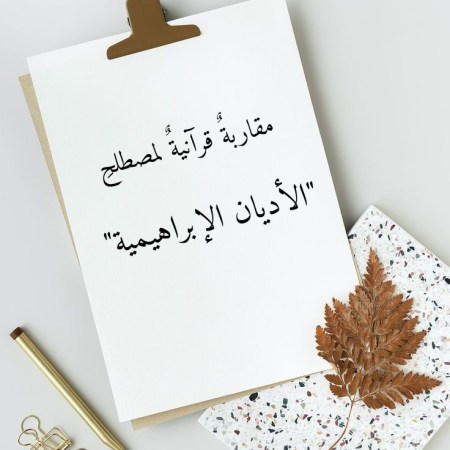 مقاربةٌ قرآنيةٌ لمصطلحِ
"الأديان الإبراهيمية"